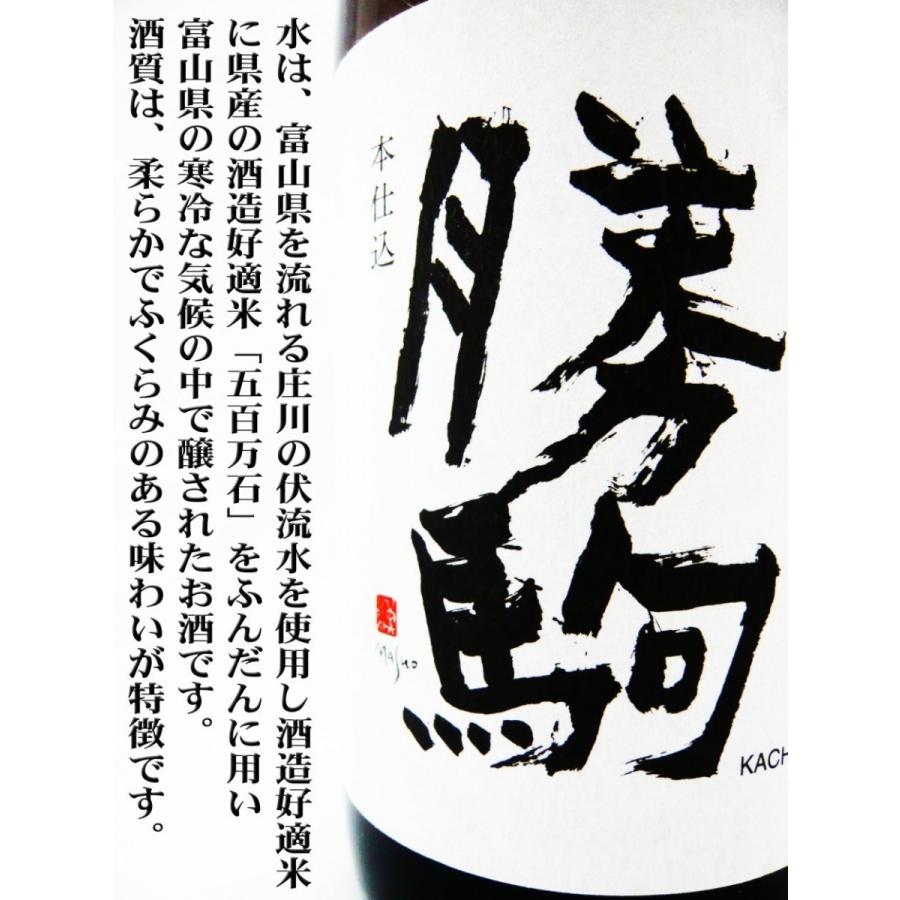 水は、富山県を流れる庄川の伏流水を使用し酒造好適米
に県産の酒造好適米「五百万石」をふんだんに用い
富山県の寒冷な気候の中で醸されたお酒です。
酒質は、柔らかでふくらみのある味わいが特徴です。
勝駒
本仕込
masuo
KACH